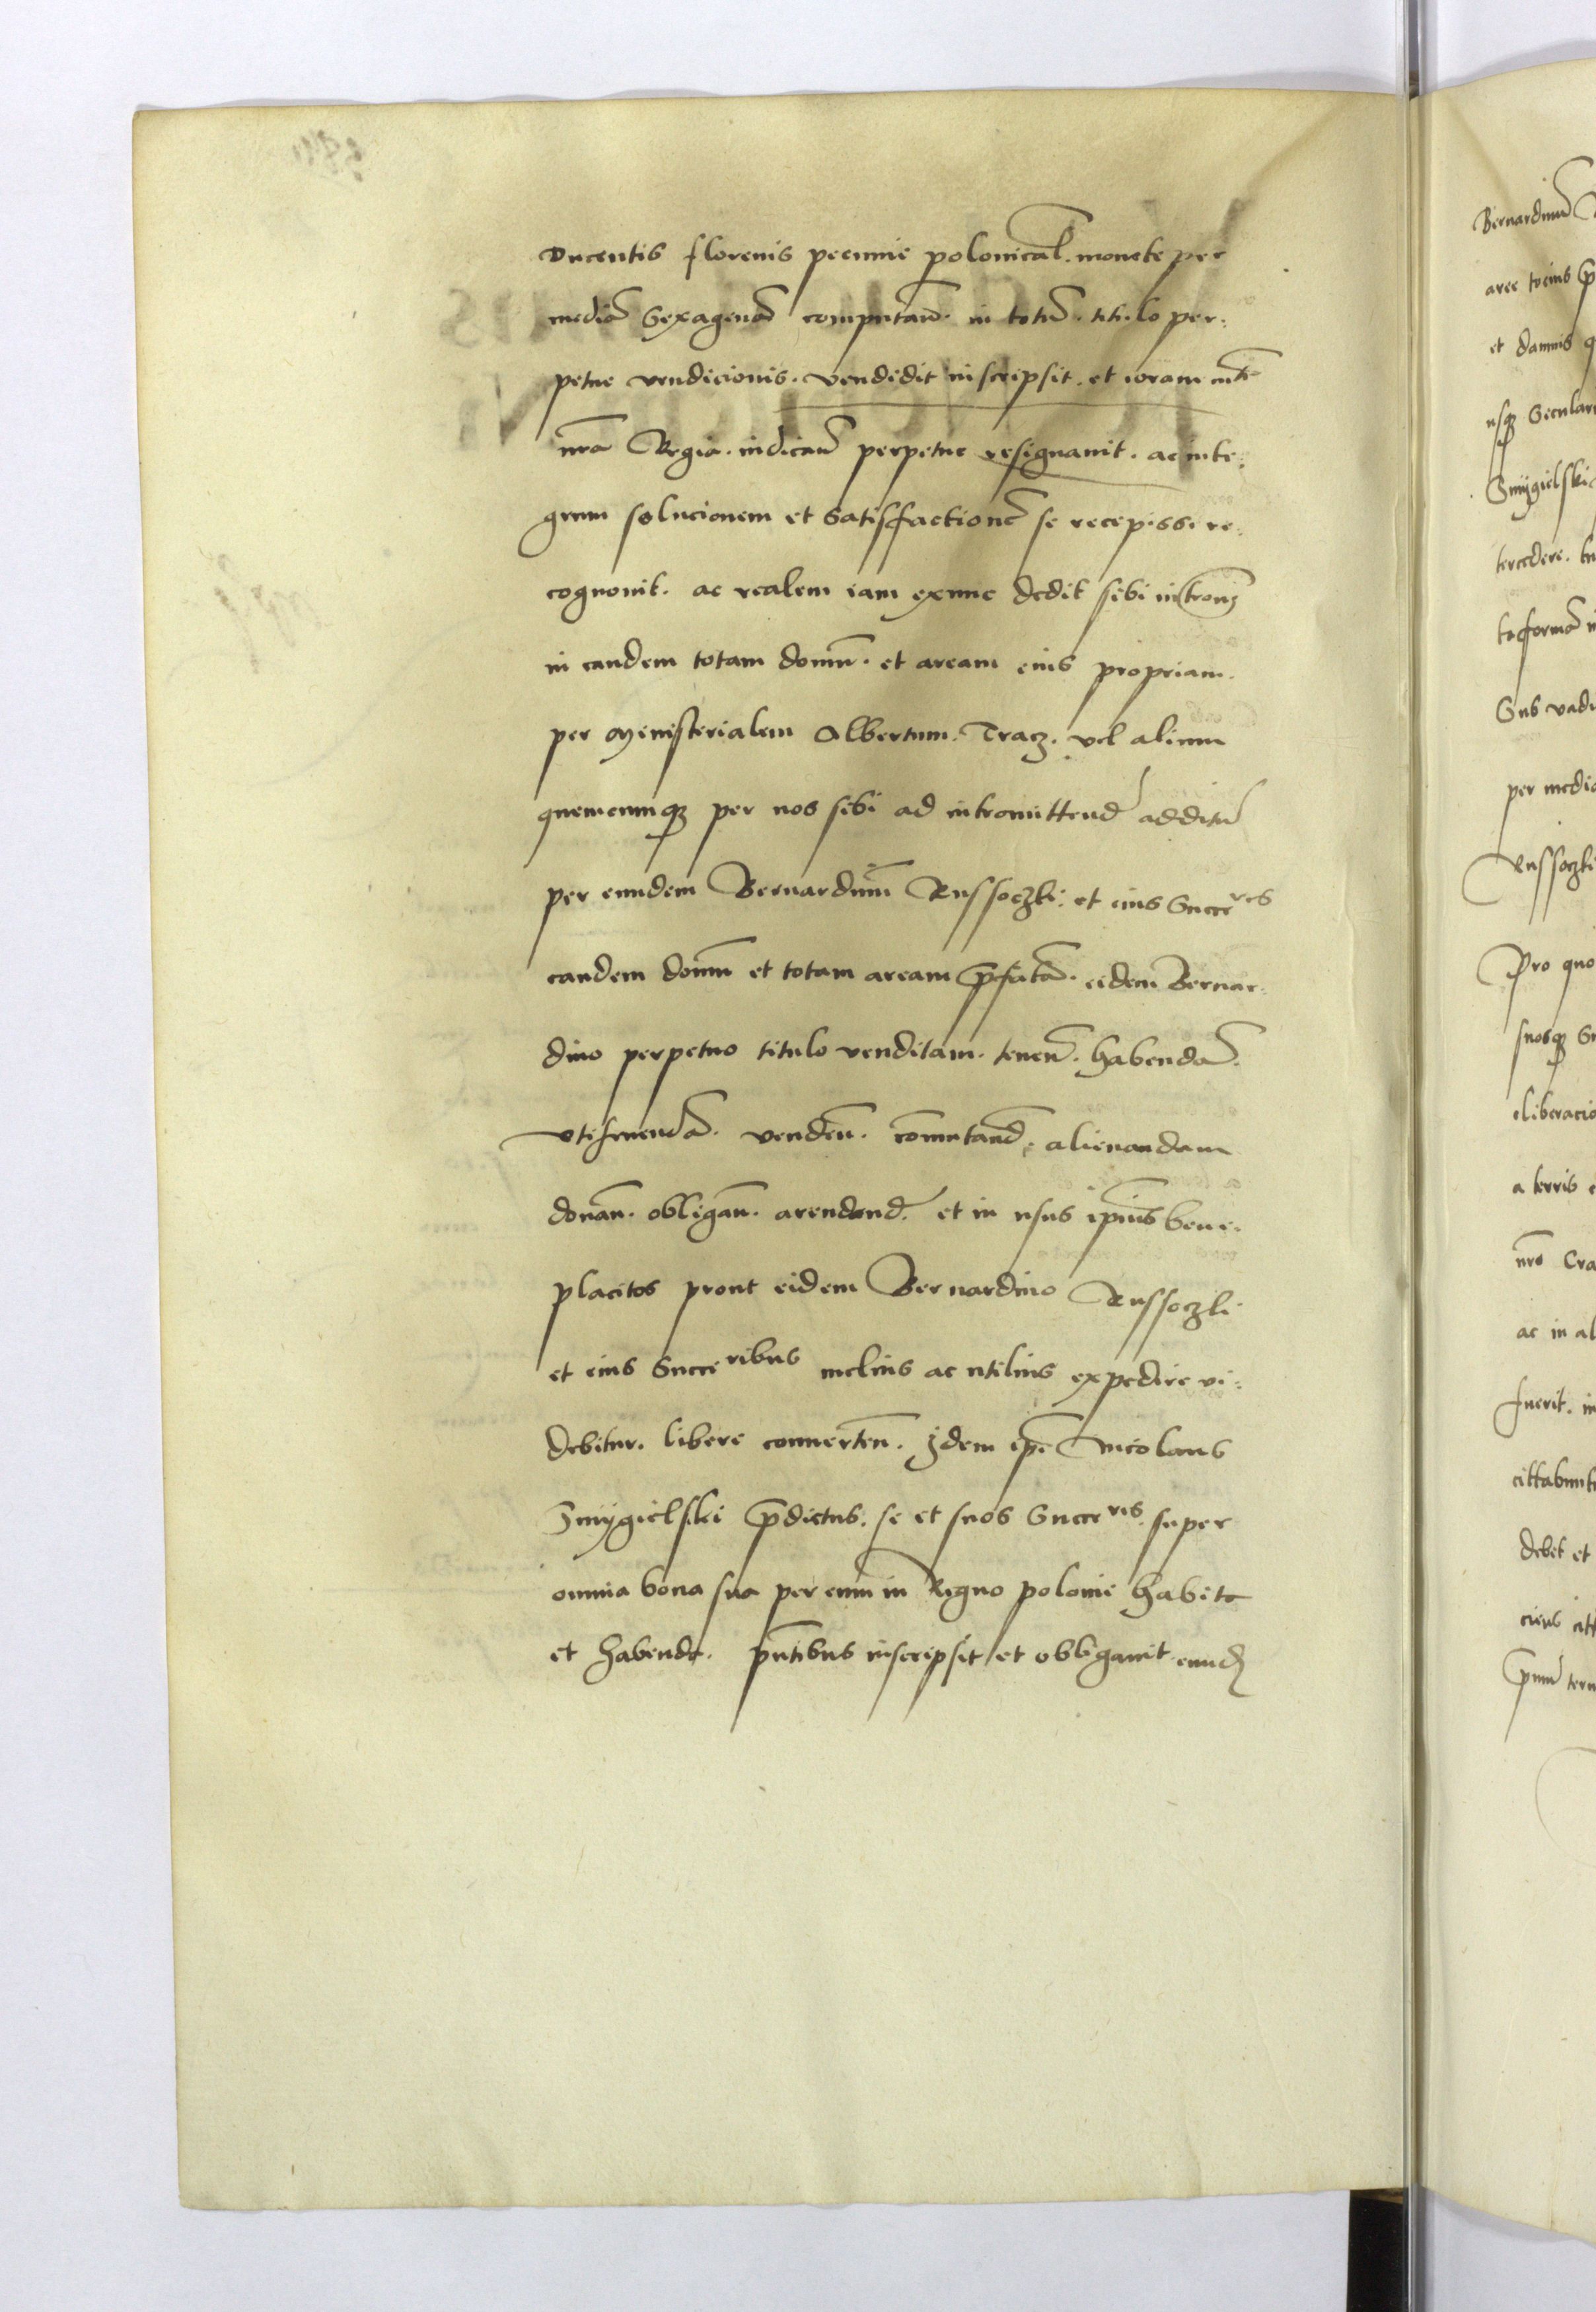 Ducentis florenis pecunie polonical. monete per
mediã Sexagenã computañ. in totũ. titulo per:
petue vendicionis. vendidit inscripsit. et coram mte
nra Regia. indicañ perpetue resignauit. ac inte:
gram solucionem et Satisfactionẽ se recepisse re:
cognouit. ac realem iam exnunc dedit sibi introm̃
in eandem totam domũ. et aream eius propriam.
per Ministerialem Albertum. Tracz. vel alium
quemcunqȝ per nos sibi ad intromittend̃ additũ
per eundem Bernardinũ Russoczki. et eius Succeres
eandem domũ et totam aream p̃fatã. eidem Bernar:
dino perpetuo titulo venditam. teneñ. habendã.
vtifruendã. vendeñ. com̃utand̃. alienandam
donañ. obligañ. arendand̃. et in usus ip̃ius bene:
placitos prout eidem Bernardino Russoczki
et eius Succeribus melius ac utilius expedire vi:
debitur. libere conuerteñ. Idem ip̃e Nicolaus
Smÿgielski p̃dictus. se et suos Succeres. super
omnia bona sua per eum in Regno polonie habita
et habenda. pñtibus inscripsit et obligauit eund̃
Bernardinũ
aree tocius
et damnis
usqȝ Secular
Smÿgielski
tercedere.
Sub vadi
per media
Russoczki
Pro quo
suosqȝ
eliberacio
a terris
nro Cra
ac in al
fuerit. in
cittabunt
debet et